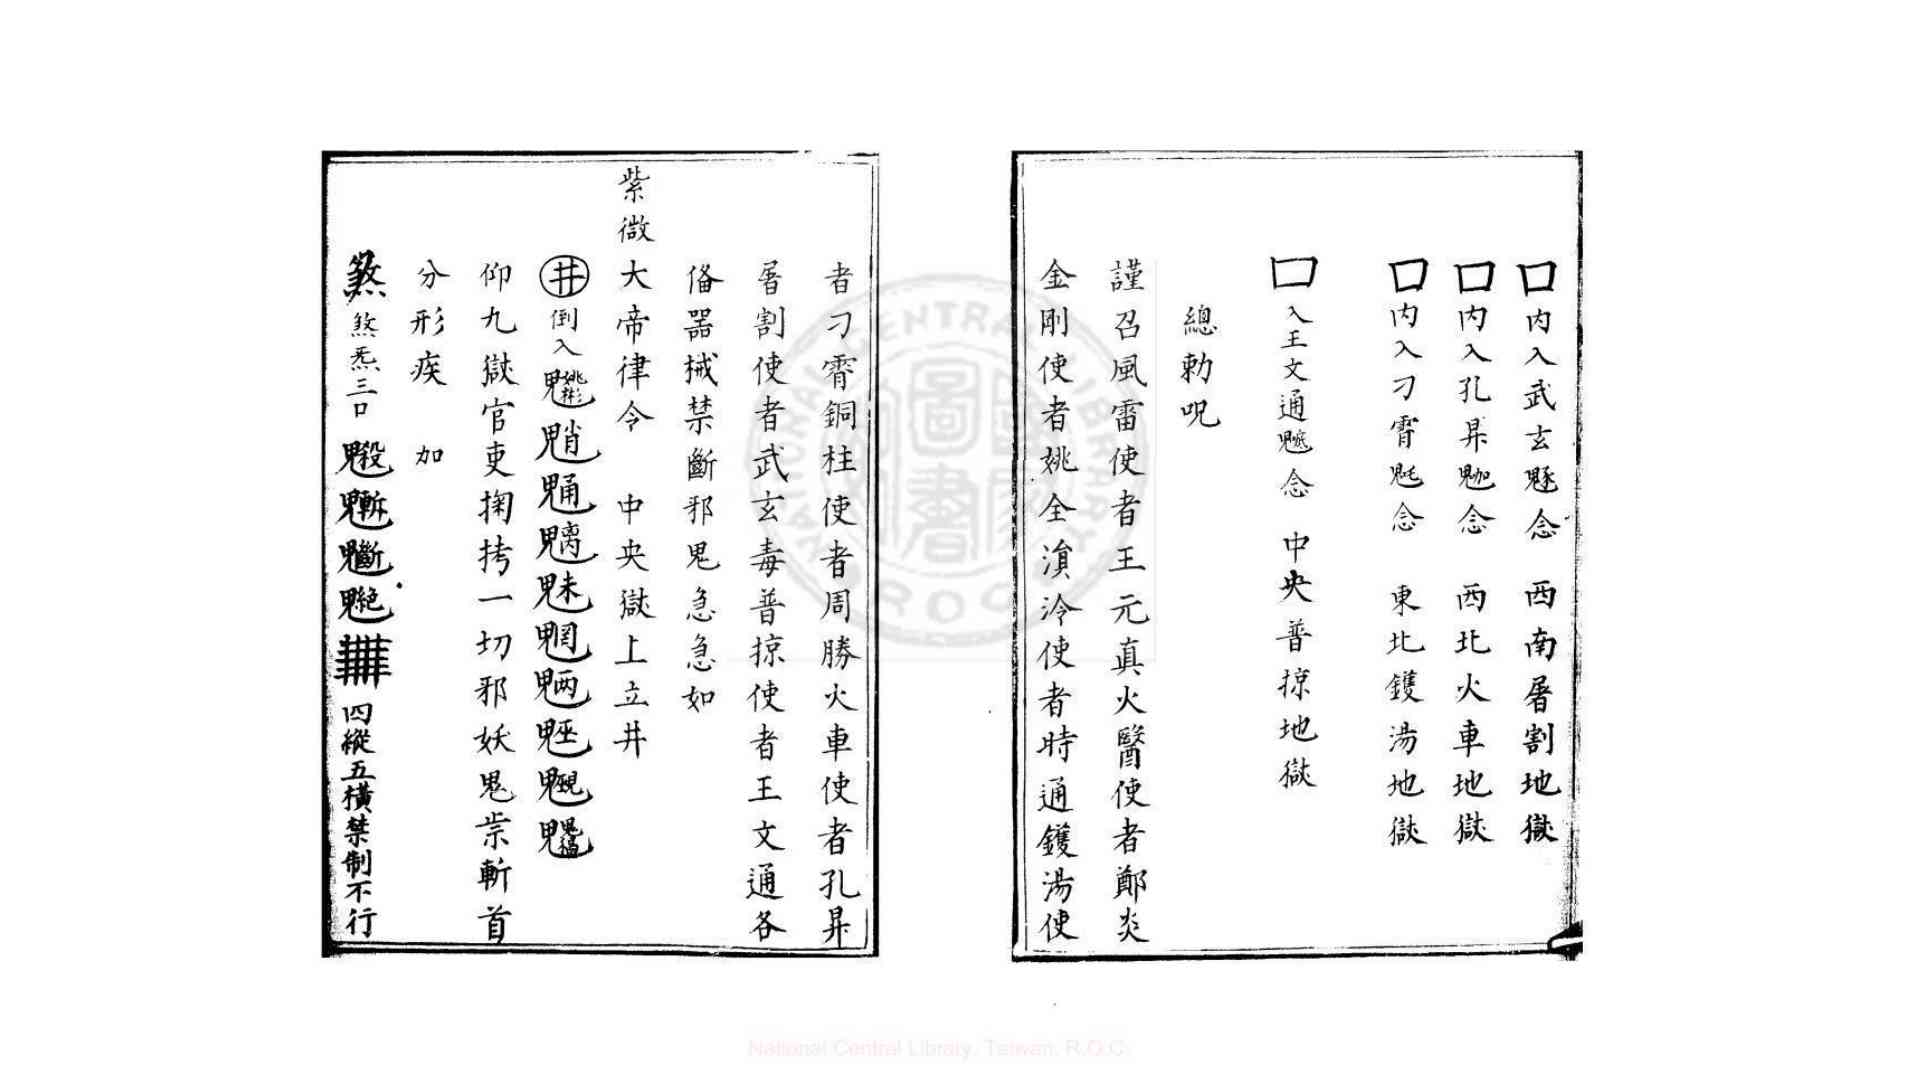 口内入武玄念 西南屠割地獄
口内入孔昇念 西北火車地獄
口内入刁霄念 東北鑊湯地獄
口入王文通念 中央普掠地獄
總勅呪
謹召風雷使者王元真火醫使者鄭炎
金剛使者姚全滇泠使者時通鑊湯使
者刁霄銅柱使者周勝火車使者孔昇
屠割使者武玄毒普掠使者王文通各
偹器械禁斷邪鬼急急如
紫微大帝律令 中央獄上立井
井倒入魈魅魍魎
仰九獄官吏掬拷一切邪妖鬼祟斬首
分形疾 加
煞煞炁三口四縱五橫禁制不行
National Central Library, Taiwan, R.O.C.